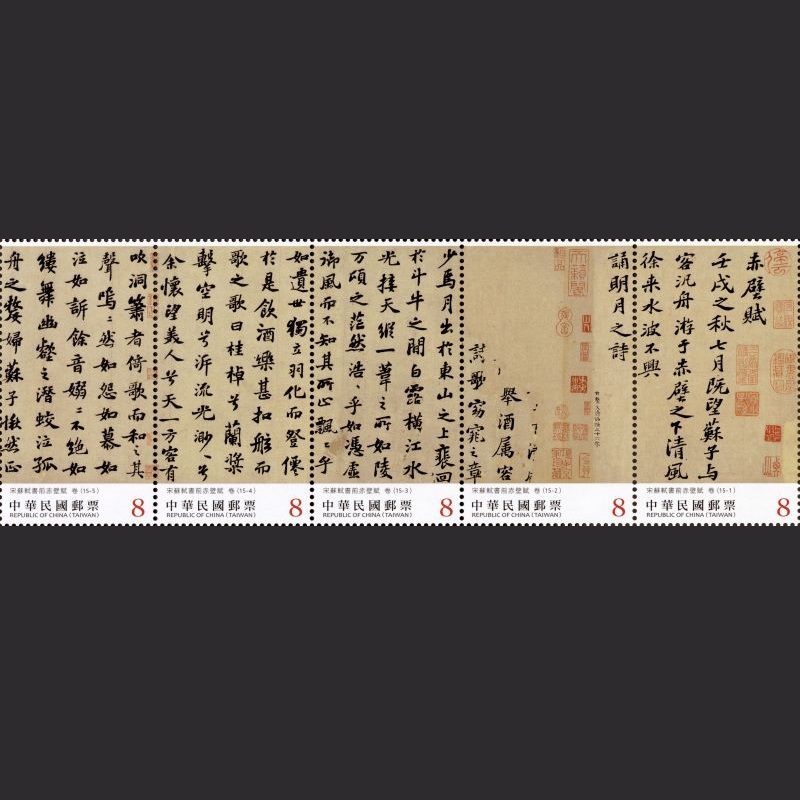 赤壁賦
壬戌之秋七月既望蘇子与
客泛舟游于赤壁之下清風
徐来水波不興
宋蘇軾書前赤壁賦 卷 (15-1)
中華民國郵票 8
REPUBLIC OF CHINA (TAIWAN)
誦明月之詩
舉酒属客
詩歌窈窕之章
宋蘇軾書前赤壁賦 卷 (15-2)
中華民國郵票 8
REPUBLIC OF CHINA (TAIWAN)
少焉月出於東山之上裵回
於斗牛之間白露横江水
光接天縱一葦之所如陵
万頃之茫然浩〻乎如憑虚
御風而不知其所止飄〻乎
宋蘇軾書前赤壁賦 卷 (15-3)
中華民國郵票 8
REPUBLIC OF CHINA (TAIWAN)
如遺世獨立羽化而登僊
於是飲酒樂甚扣舷而
歌之歌曰桂棹兮蘭槳
擊空明兮泝流光渺〻兮
余懷望美人兮天一方客有
宋蘇軾書前赤壁賦 卷 (15-4)
中華民國郵票 8
REPUBLIC OF CHINA (TAIWAN)
吹洞簫者倚歌而和之其
聲嗚〻然如怨如慕如
泣如訴餘音嫋〻不絶如
縷舞幽壑之潜蛟泣孤
舟之嫠婦蘇子愀然正
宋蘇軾書前赤壁賦 卷 (15-5)
中華民國郵票 8
REPUBLIC OF CHINA (TAIWAN)